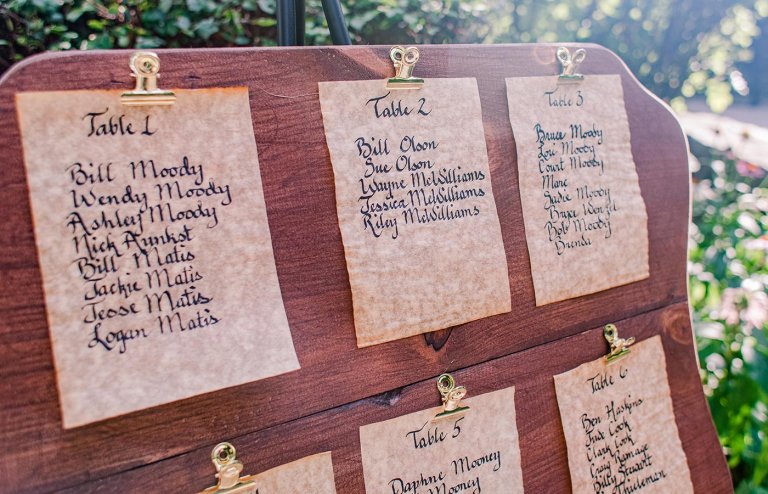 Table 1
Bill Moody
Wendy Moody
Ashley Moody
Nick Arnkst
Bill Matis
Jackie Matis
Jesse Matis
Logan Matis
Table 2
Bill Olson
Sue Olson
Wayne McWilliams
Jessica McWilliams
Riley McWilliams
Table 3
Bruce Moody
Lori Moody
Court Moody
Marc
Sadie Moody
Bryce Wenzel
Bob Moody
Brenda
Table 5
Daphne Mooney
Mooney
Table 6
Ben Haskins
Jude Cook
Clark Cook
Craig Ramage
Billy Stewart
Thieleman